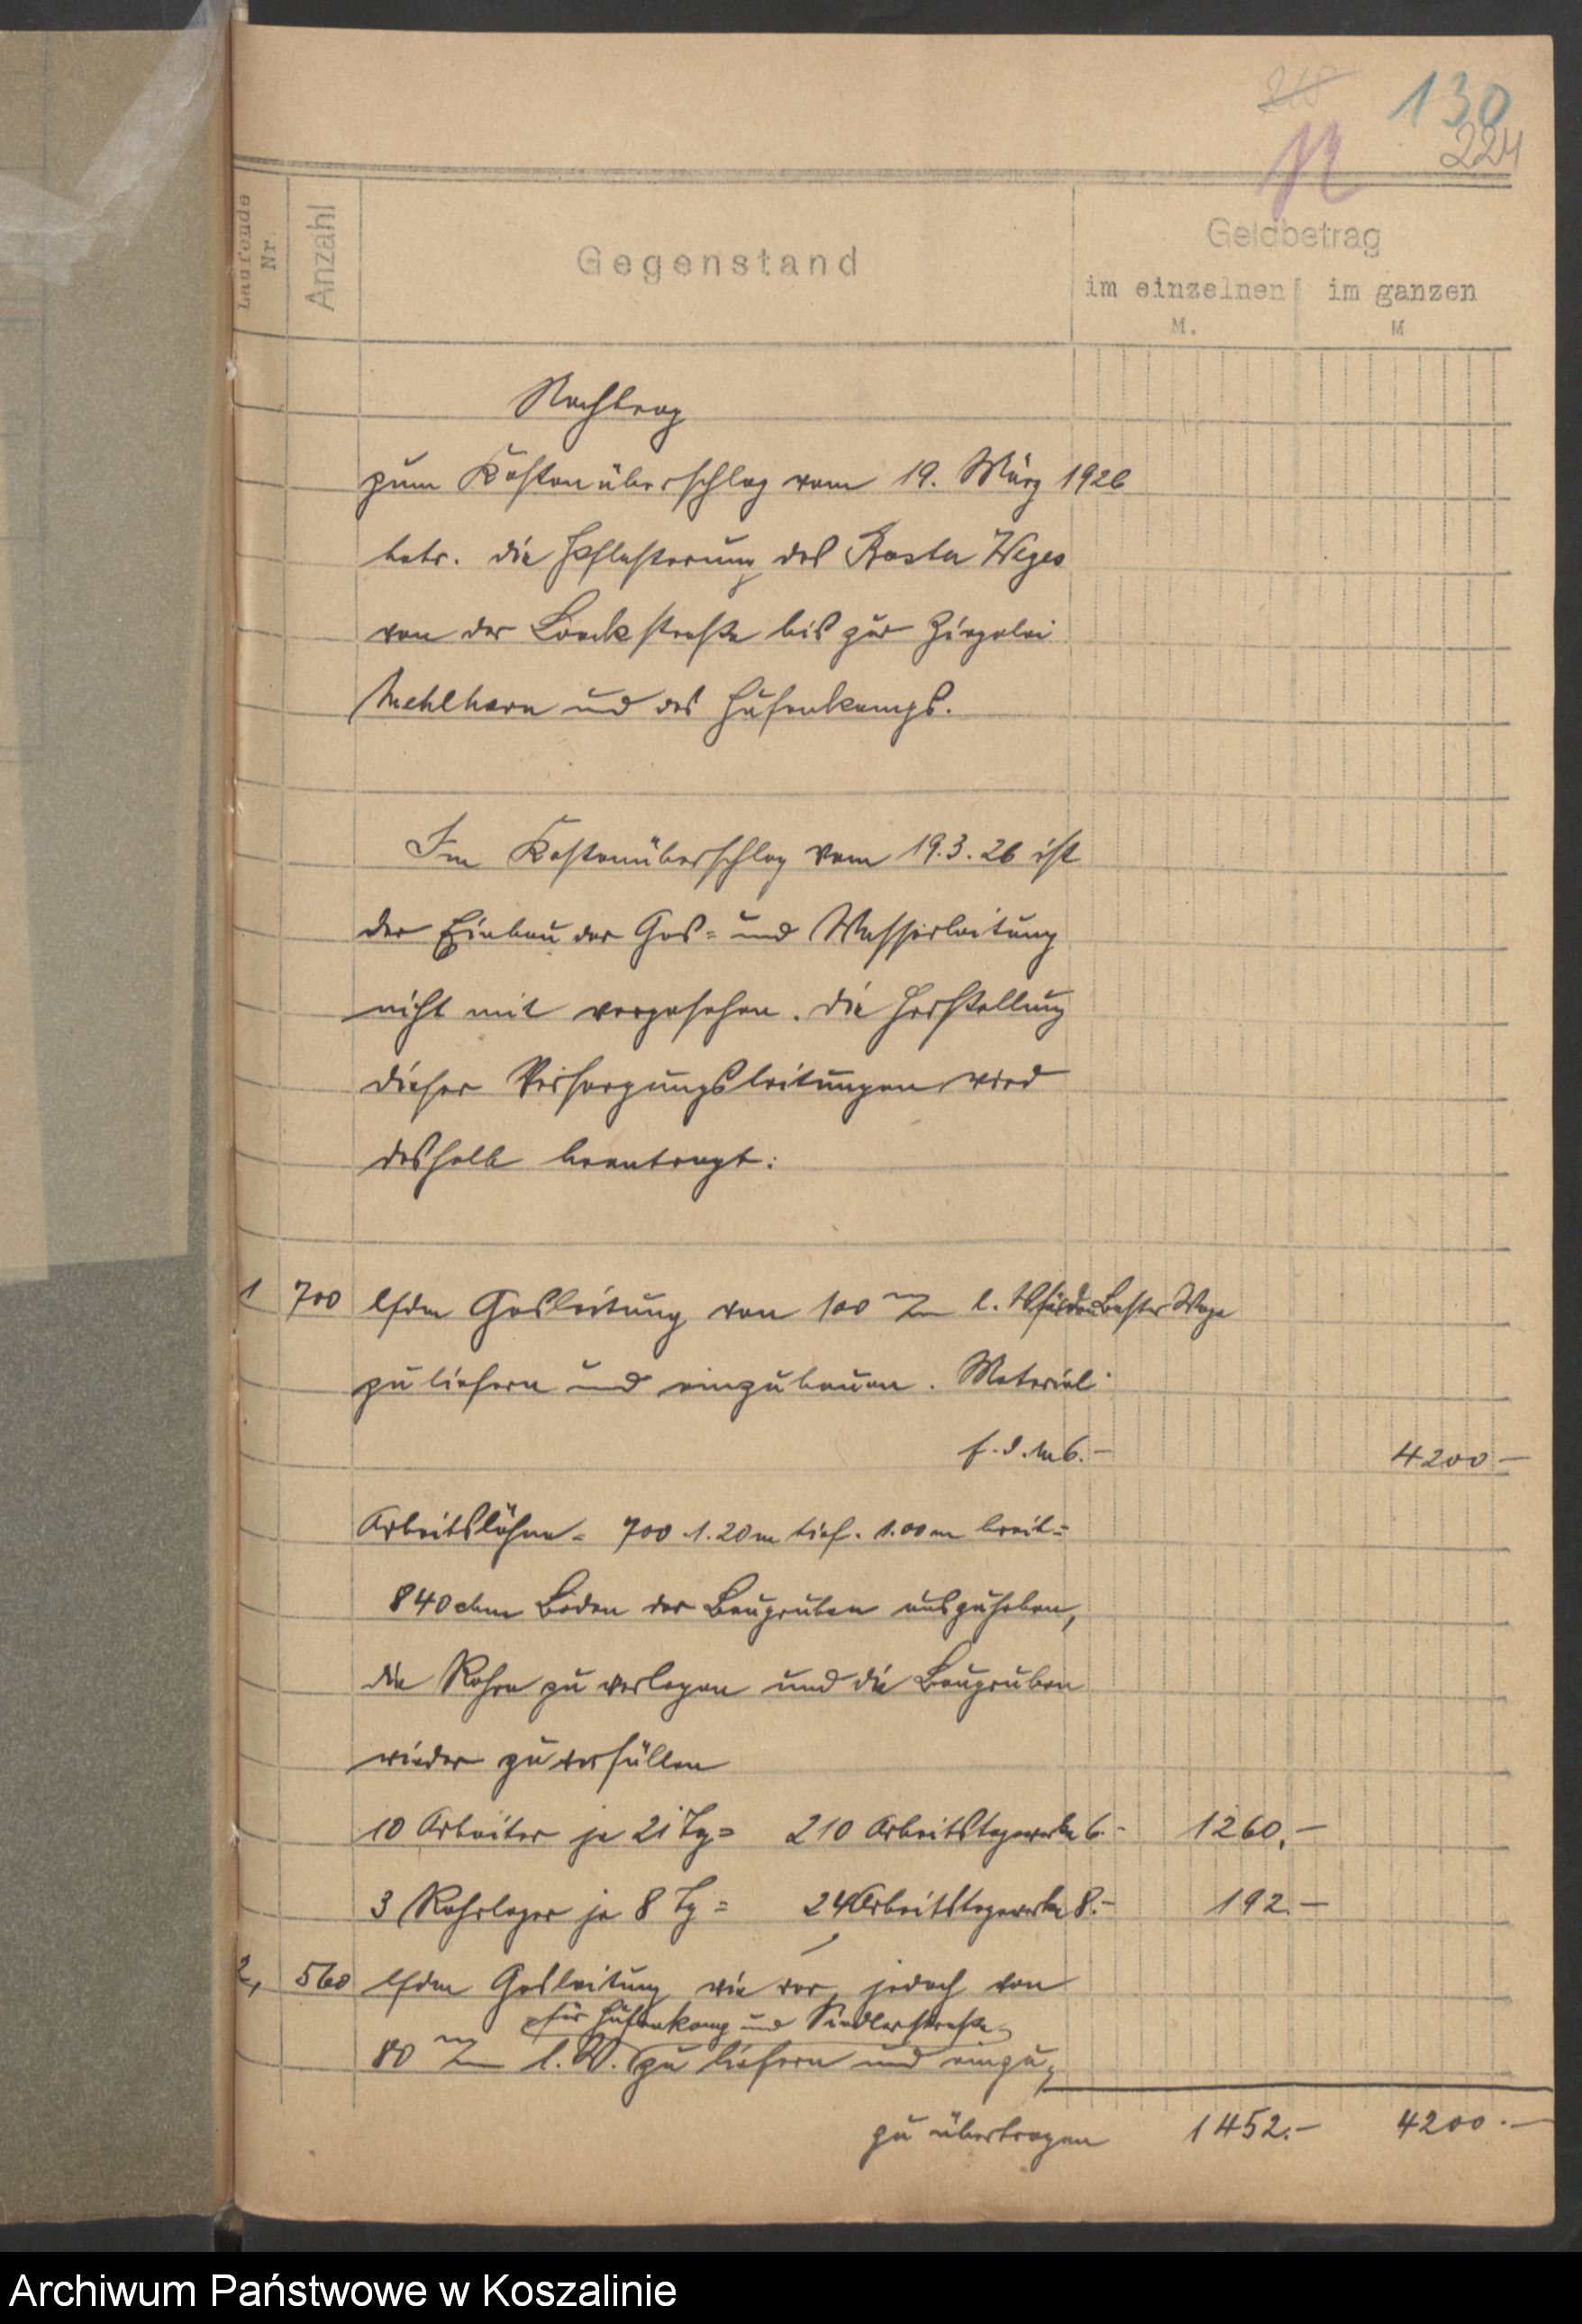 130
224
Laufende Nr.
Anzahl
Gegenstand
Geldbetrag
im einzelnen
im ganzen
M.
M
Nachtrag
zum Kostenüberschlag vom 19. März 1926
betr. die Pflasterung des Baster Weges
von der straße bis zur Ziegelei
Mehlhorn und des Hufenkamps.
Im Kostenüberschlag vom 19.3.26 ist
der Einbau der Gas= und Wasserleitung
nicht mit vorgesehen. Die Herstellung
dieser Versorgungsleitungen wird
deshalb beantragt:
1 700 lfdm Gasleitung von 100 m/m l. W. für den Baster Wege
zu liefern und einzubauen. Material
f. d. M 6.- 4200-
Arbeitslöhne = 700.1.20m tief. 1.00m breit =
840 cbm Boden der Baugruben auszuheben,
die Rohre zu verlegen und die Baugruben
wieder zu verfüllen
10 Arbeiter je 21 Tg = 210 Arbeitstagewerke 6.- 1260.-
3 Rohrleger je 8 Tg = 24 Arbeitstagewerke 8.- 192.-
2, 560 lfdm Gasleitung wie vor, jedoch von
für Hufenkamp und Siedlerstraße
80 m/m l. W. zu liefern und einzu=
zu übertragen 1452.- 4200.-
Archiwum Państwowe w Koszalinie